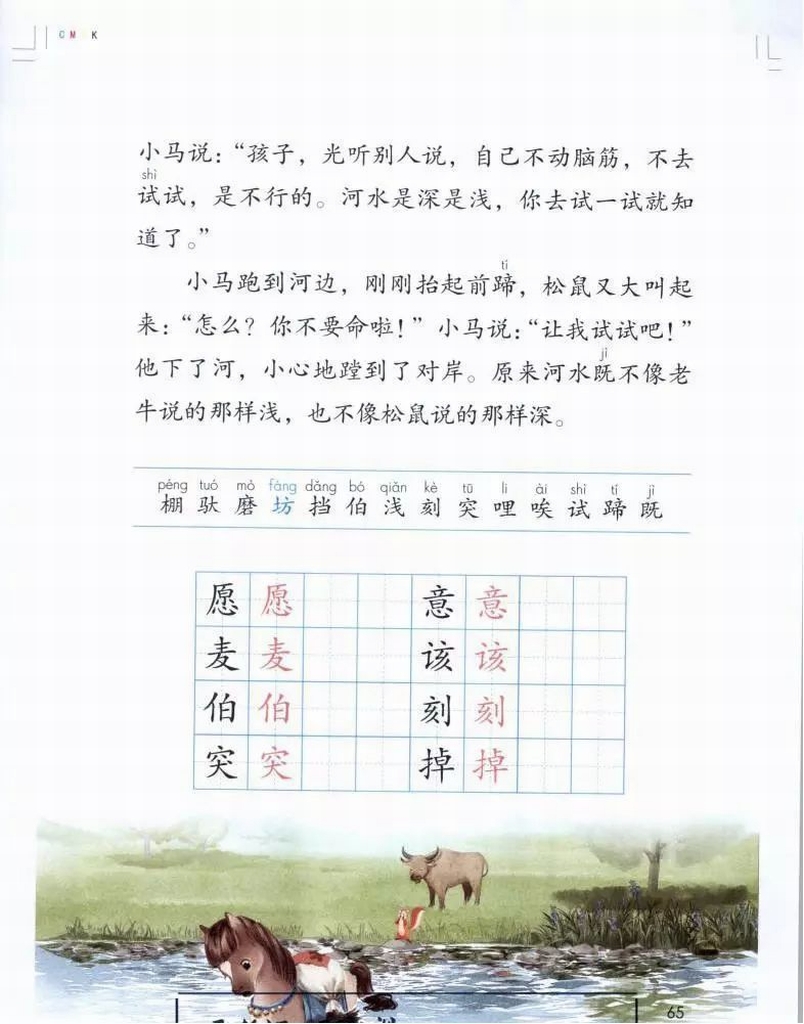 C M K
小马说：“孩子，光听别人说，自己不动脑筋，不去
shì
试试，是不行的。河水是深是浅，你去试一试就知
道了。”
tí
小马跑到河边，刚刚抬起前蹄，松鼠又大叫起
来：“怎么？你不要命啦！”小马说：“让我试试吧！”
jì
他下了河，小心地蹚到了对岸。原来河水既不像老
牛说的那样浅，也不像松鼠说的那样深。
péng tuó mò fáng dǎng bó qiǎn kè tū li ài shì tí jì
棚 驮 磨 坊 挡 伯 浅 刻 突 哩 唉 试 蹄 既
愿 愿 意 意
麦 麦 该 该
伯 伯 刻 刻
突 突 掉 掉
65